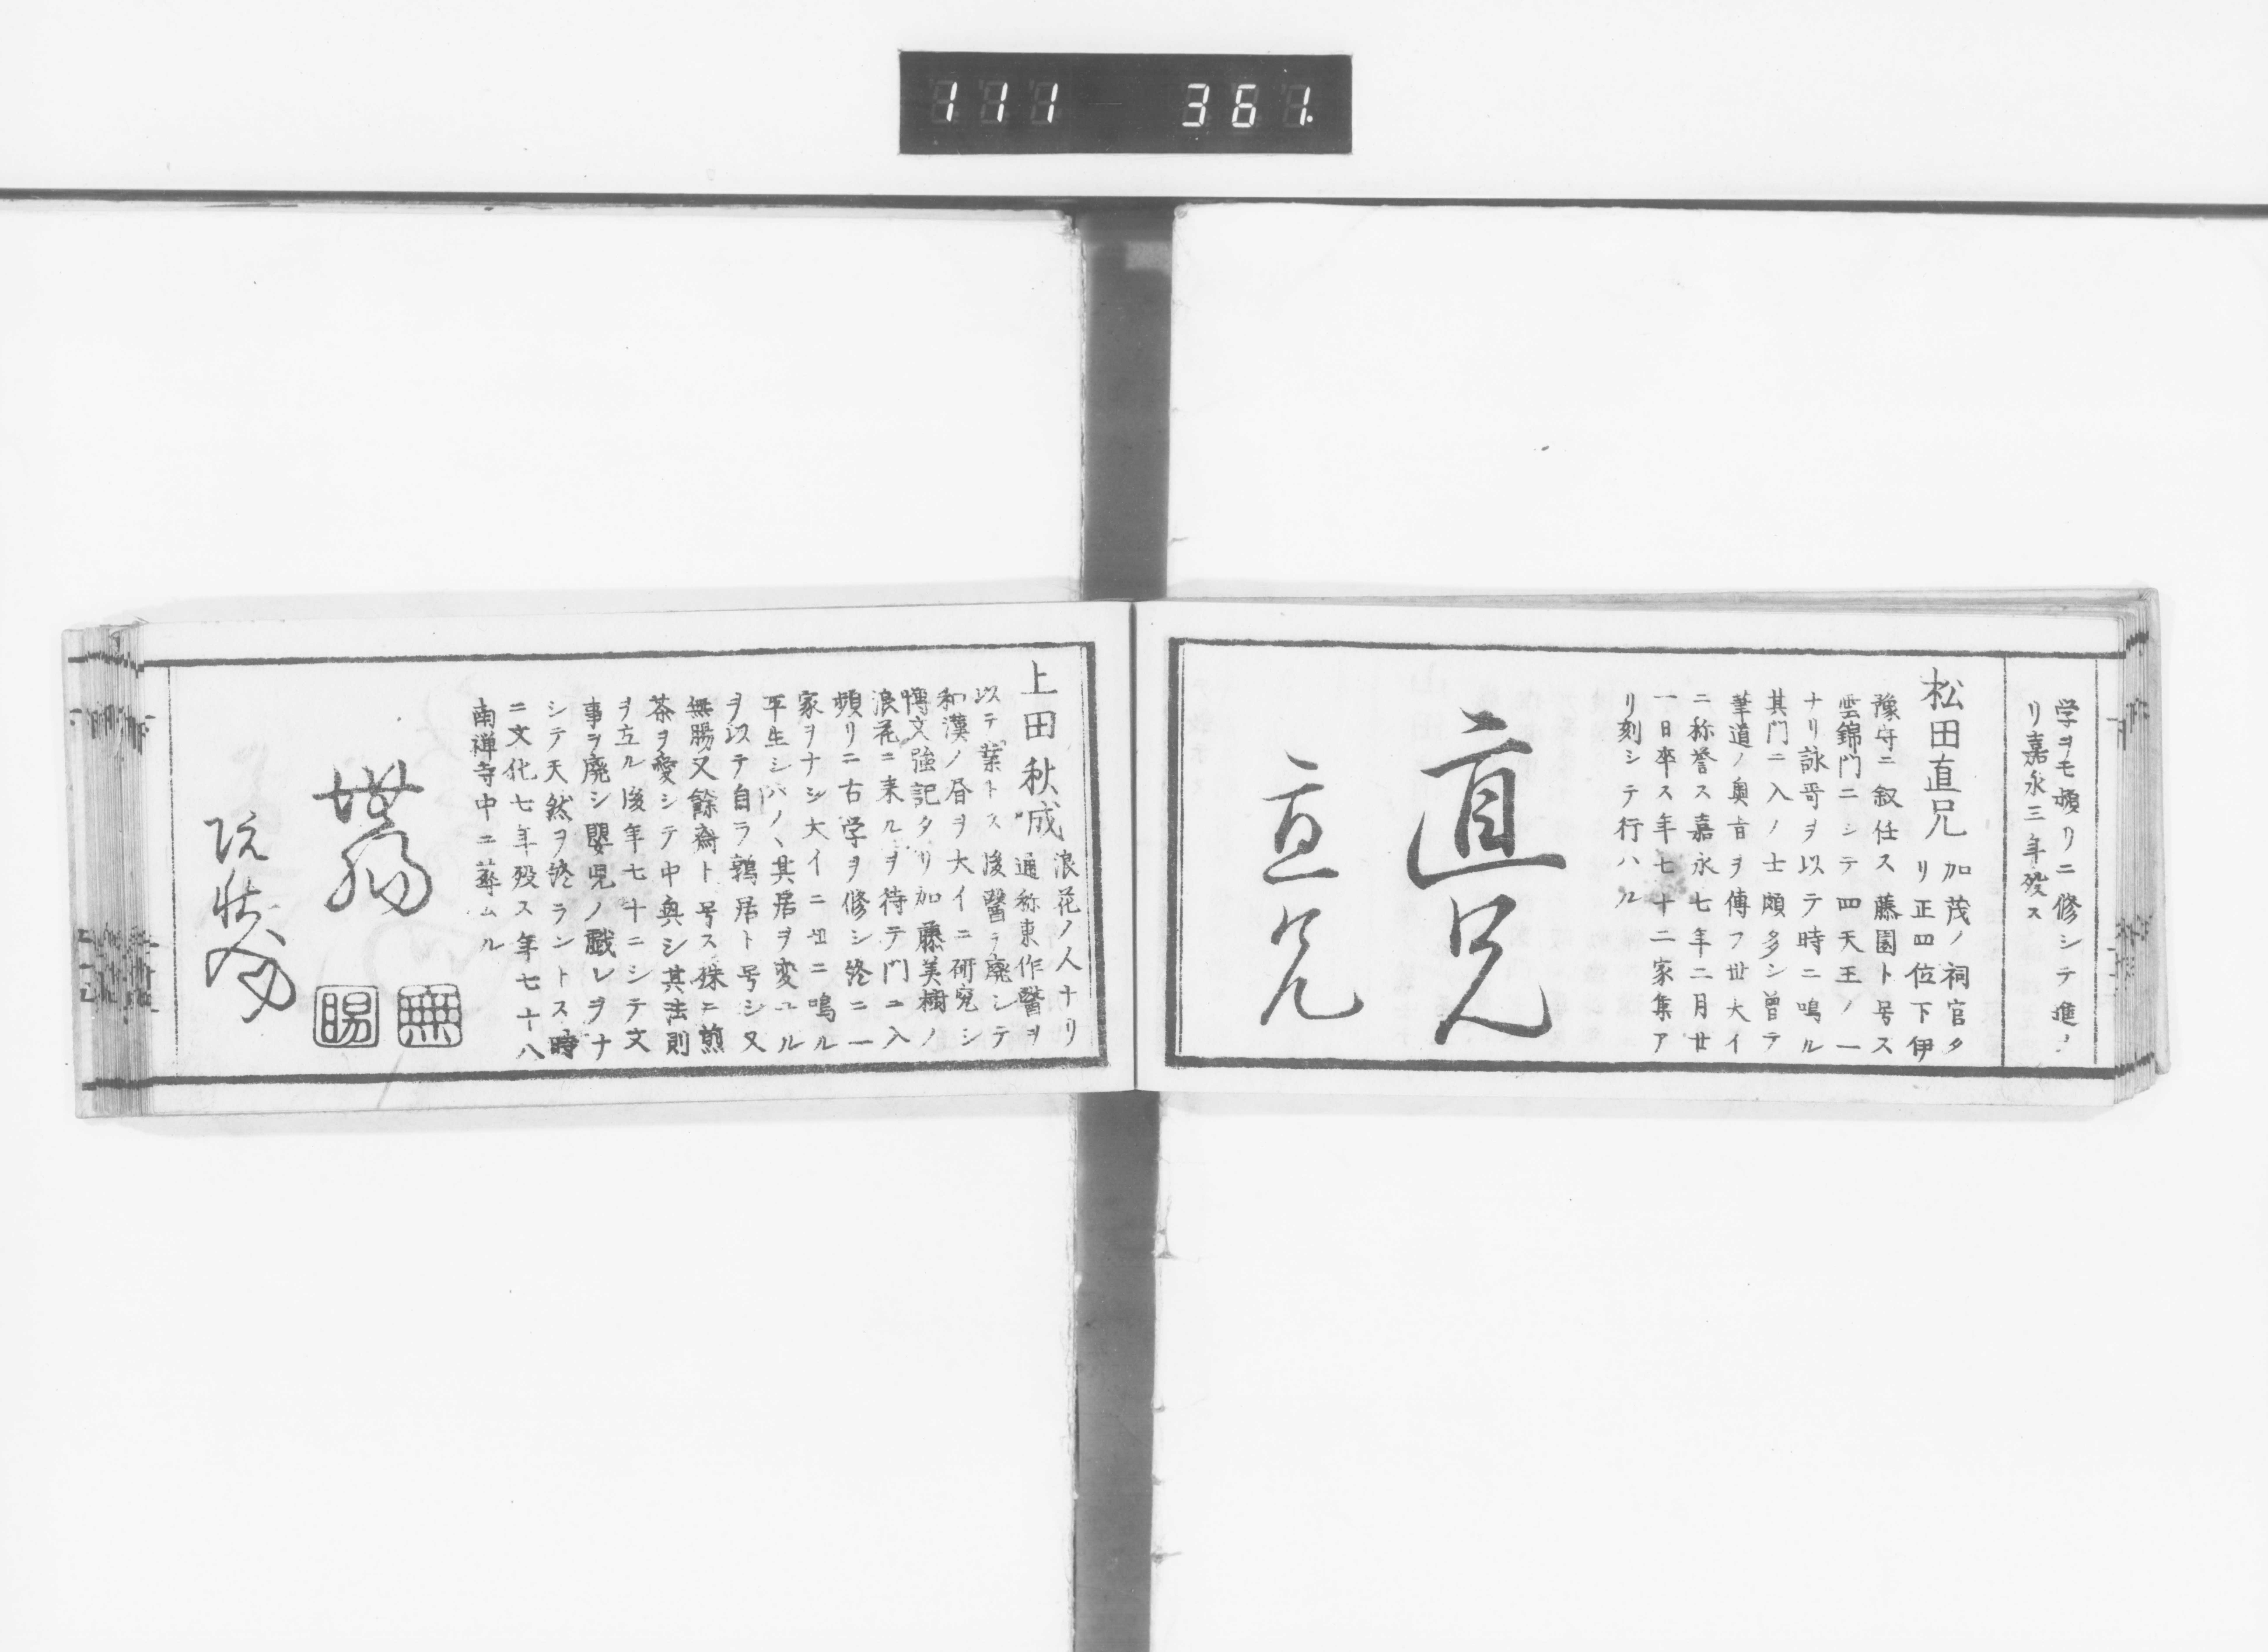 111 361.
学ヲモ頻リニ修シテ進ノ
リ嘉永三年歿ス
松田直兄 加茂ノ祠官タ
リ正四位下伊
豫守ニ叙任ス藤園ト号ス
雲錦門ニシテ四天王ノ一
ナリ詠哥ヲ以テ時ニ鳴ル
其門ニ入ノ士頗多シ曽テ
筆道ノ奥旨ヲ傳フ世大イ
ニ称誉ス嘉永七年二月廿
一日卒ス年七十二家集ア
リ刻シテ行ハル
直兄
直兄
上田秋成 浪花ノ人ナリ
通称東作醫ヲ
以テ業トス後醫ヲ廃シテ
和漢ノ昏ヲ大イニ研究シ
博文強記タリ加藤美樹ノ
浪花ニ来ルヲ待テ門ニ入
頻リニ古学ヲ修シ終ニ一
家ヲナシ大イニ世ニ鳴ル
平生シバ〱其居ヲ変ユル
ヲ以テ自ラ鶉居ト号シ又
無腸又餘斎ト号ス殊ニ煎
茶ヲ愛シテ中興シ其法則
ヲ立ル後年七十ニシテ文
事ヲ廃シ嬰児ノ戯レヲナ
シテ天然ヲ終ラントス時
ニ文化七年歿ス年七十八
南禅寺中ニ葬ムル
無腸
無
腸